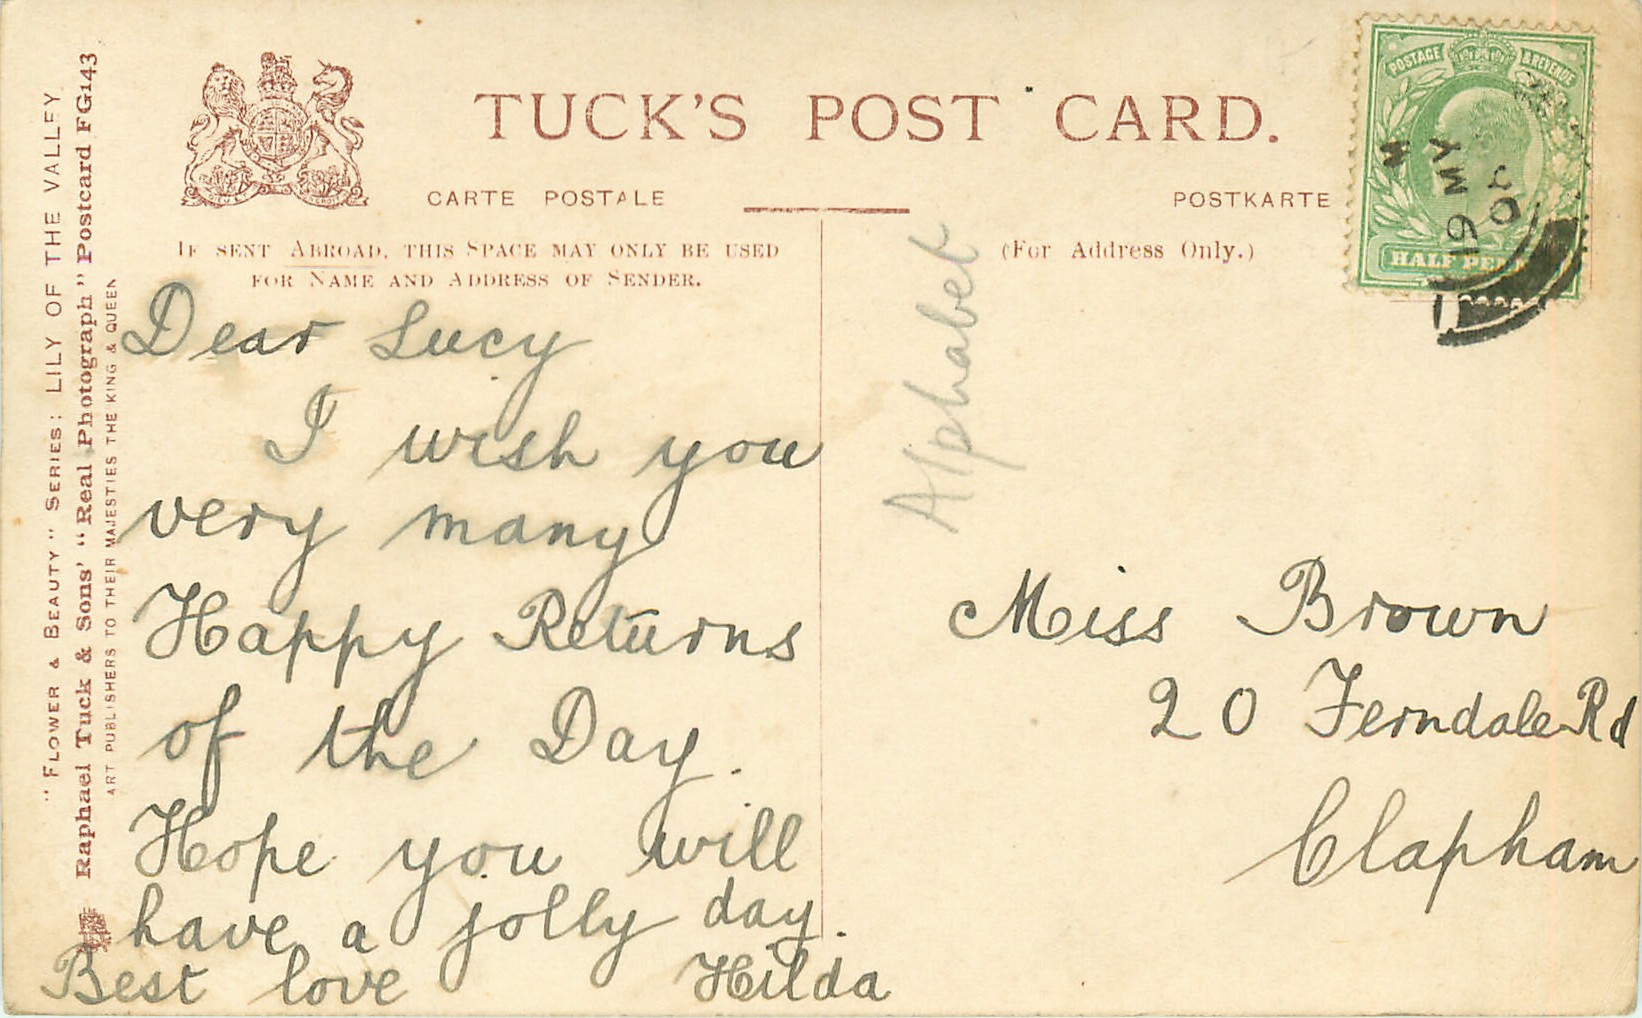 "FLOWER & BEAUTY" SERIES: LILY OF THE VALLEY.
Raphael Tuck & Sons' "Real Photograph" Postcard FG143
ART PUBLISHERS TO THEIR MAJESTIES THE KING & QUEEN
TUCK'S POST CARD.
CARTE POSTALE
POSTKARTE
IF SENT ABROAD, THIS SPACE MAY ONLY BE USED
FOR NAME AND ADDRESS OF SENDER.
(For Address Only.)
POSTAGE & REVENUE
HALF PEN
MY 19
Dear Lucy
I wish you
very many
Happy Returns
of the Day.
Hope you will
have a jolly day.
Best love Hilda
Alphabet
Miss Brown
20 Ferndale Rd
Clapham